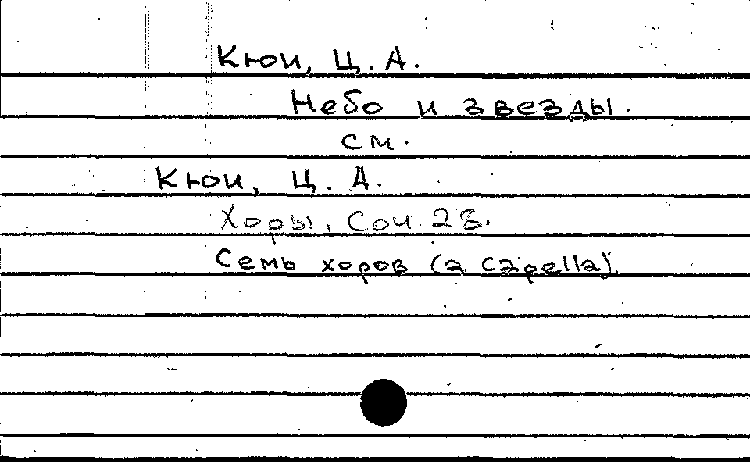 Кюи, Ц. А.
Небо и звезды.
см.
Кюи, Ц. А.
Хоры, Соч. 28.
Семь хоров (a capella)